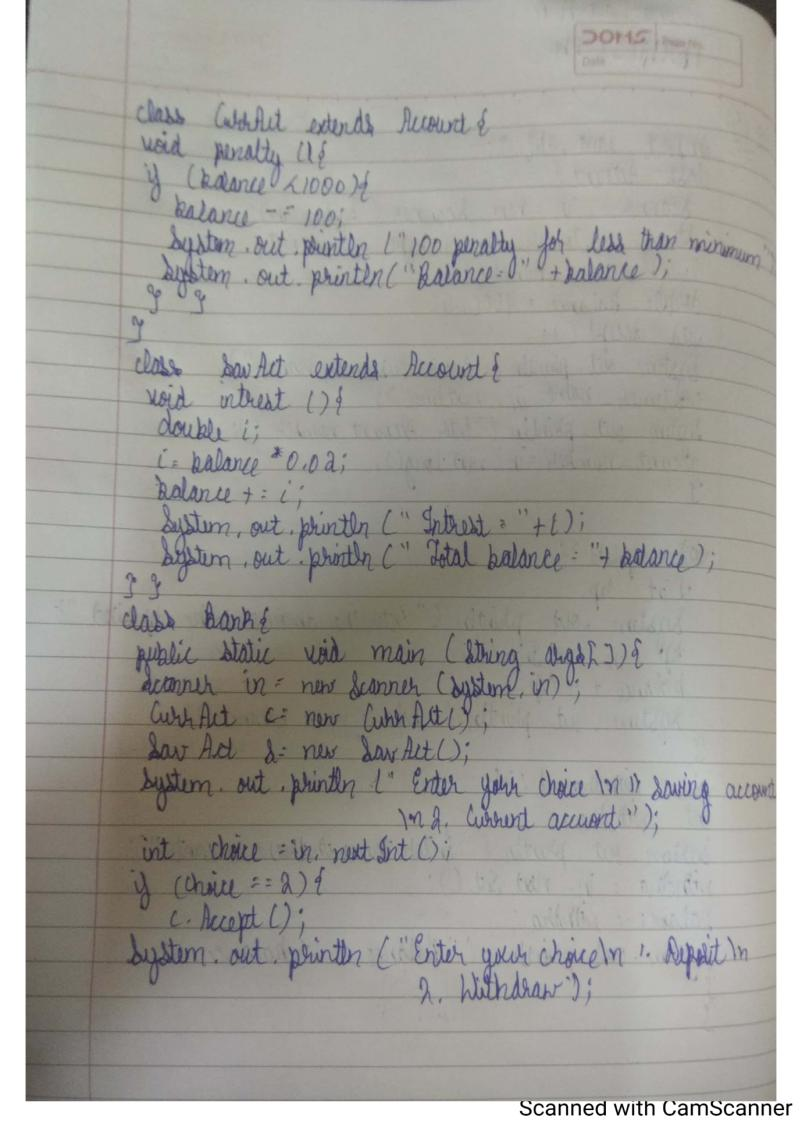 DOMS
Page No.
Date
class CurrAct extends Account {
void penalty () {
if (balance < 1000) {
balance -= 100;
System.out.println ("100 penalty for less than minimum
System.out.println ("Balance = " + balance);
} }
}
class SavAct extends Account {
void intrest () {
double i;
i = balance * 0.02;
balance += i;
System.out.println (" Intrest = " + i);
System.out.println (" Total balance = " + balance);
} }
class Bank {
public static void main (String args[]) {
Scanner in = new Scanner (System.in);
CurrAct c = new CurrAct();
SavAct s = new SavAct();
System.out.println (" Enter your choice \n 1) Saving account
\n 2. Current account");
int choice = in.nextInt();
if (choice == 2) {
c.Accept();
System.out.println ("Enter your choice\n 1. Deposit\n
2. Withdraw");
Scanned with CamScanner